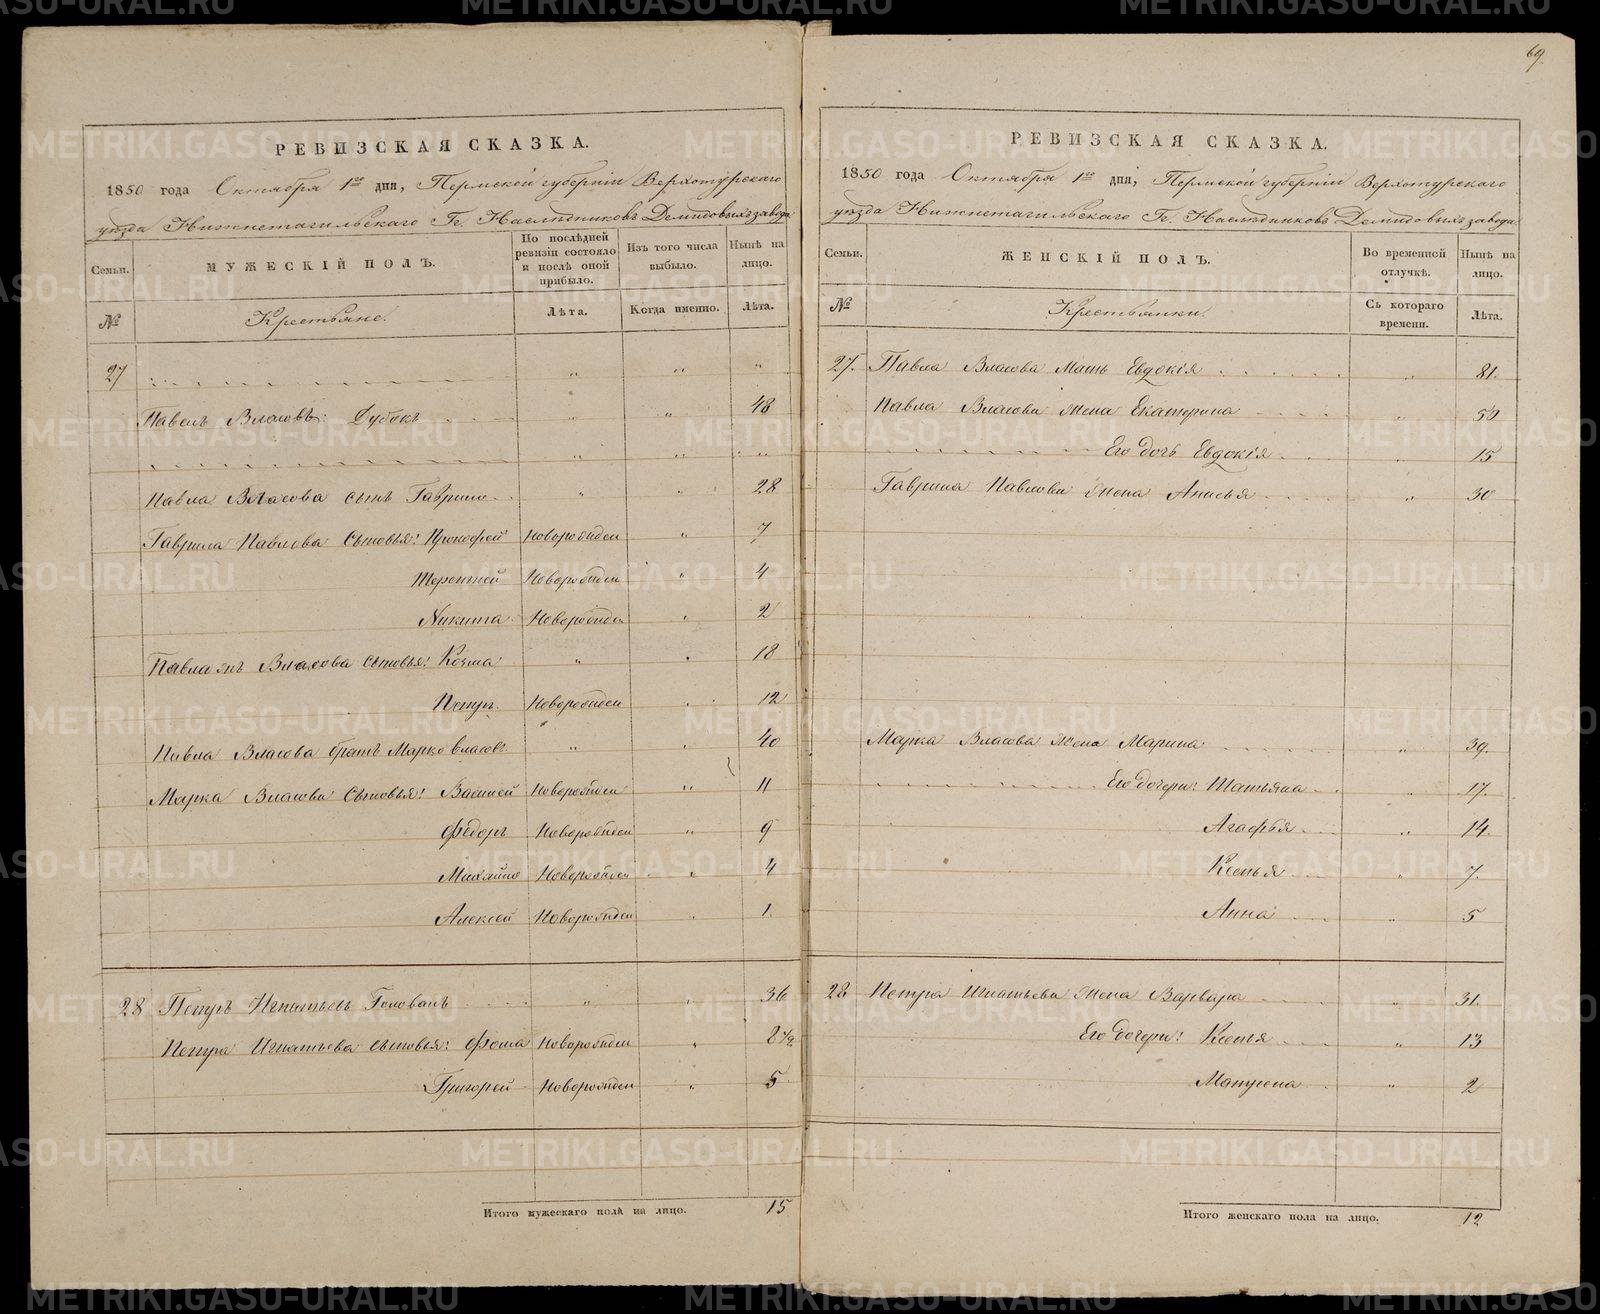 69.
РЕВИЗСКАЯ СКАЗКА.
1850 года Октября 1го дня, Пермской губернiи Верхотурскаго
уѣзда Нижнетагильскаго Гг. Наслѣдниковъ Демидовыхъ завода
Семьи.
МУЖЕСКIЙ ПОЛЪ.
По послѣдней ревизiи состояло и послѣ оной прибыло.
Изъ того числа выбыло.
Нынѣ на лицо.
№
Крестьяне.
Лѣта.
Когда именно.
Лѣта.
27
Павелъ Власовъ: Дубокъ 48
Павла Власова сынъ Гаврило 28
Гаврила Павлова Сыновья: Прокофей Новорожден 7
Терентей Новорожден 4
Никита Новорожден 2
Павла Власова Сыновья: Козма 18
Петръ. Новорожден 12
Павла Власова братъ Марко Власовъ 40
Марка Власова Сыновья: Василей Новорожден 11
Федоръ Новорожден 9
Михайло Новорожден 4
Алексей Новорожден 1.
28 Петръ Игнатьевъ Голованъ 36
Петра Игнатьева Сыновья: Фома Новорожден 8
Григорей Новорожден 5
Итого мужескаго пола на лицо. 15
РЕВИЗСКАЯ СКАЗКА.
1850 года Октября 1го дня, Пермской губернiи Верхотурскаго
уѣзда Нижнетагильскаго Гг. Наслѣдниковъ Демидовыхъ завода
Семьи.
ЖЕНСКIЙ ПОЛЪ.
Во временной отлучкѣ.
Нынѣ на лицо.
№
Крестьянки.
Съ котораго времени.
Лѣта.
27. Павла Власова Мать Евдокiя 81.
Павла Власова Жена Екатерина 50
Его дочь Евдокiя 15
Гаврила Павлова Жена Анисья 30
Марка Власова Жена Марина 39.
Его дочери: Татьяна 17.
Агафья 14.
Ксенья 7.
Анна 5
28 Петра Игнатьева Жена Варвара 31.
Его дочери: Ксенья 13
Матрена 2
Итого женскаго пола на лицо. 12
METRIKI.GASO-URAL.RU